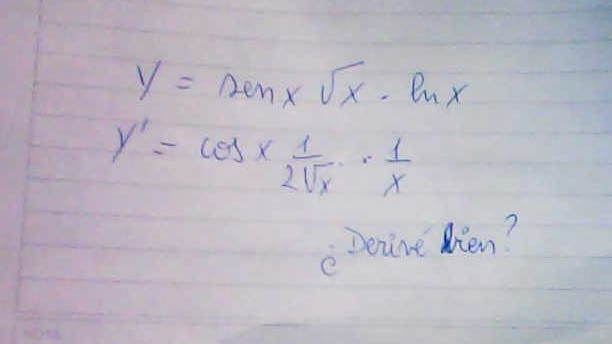 y = sen x √x · ln x
y' = cos x 1/(2√x) · 1/x
¿Derivé bien?